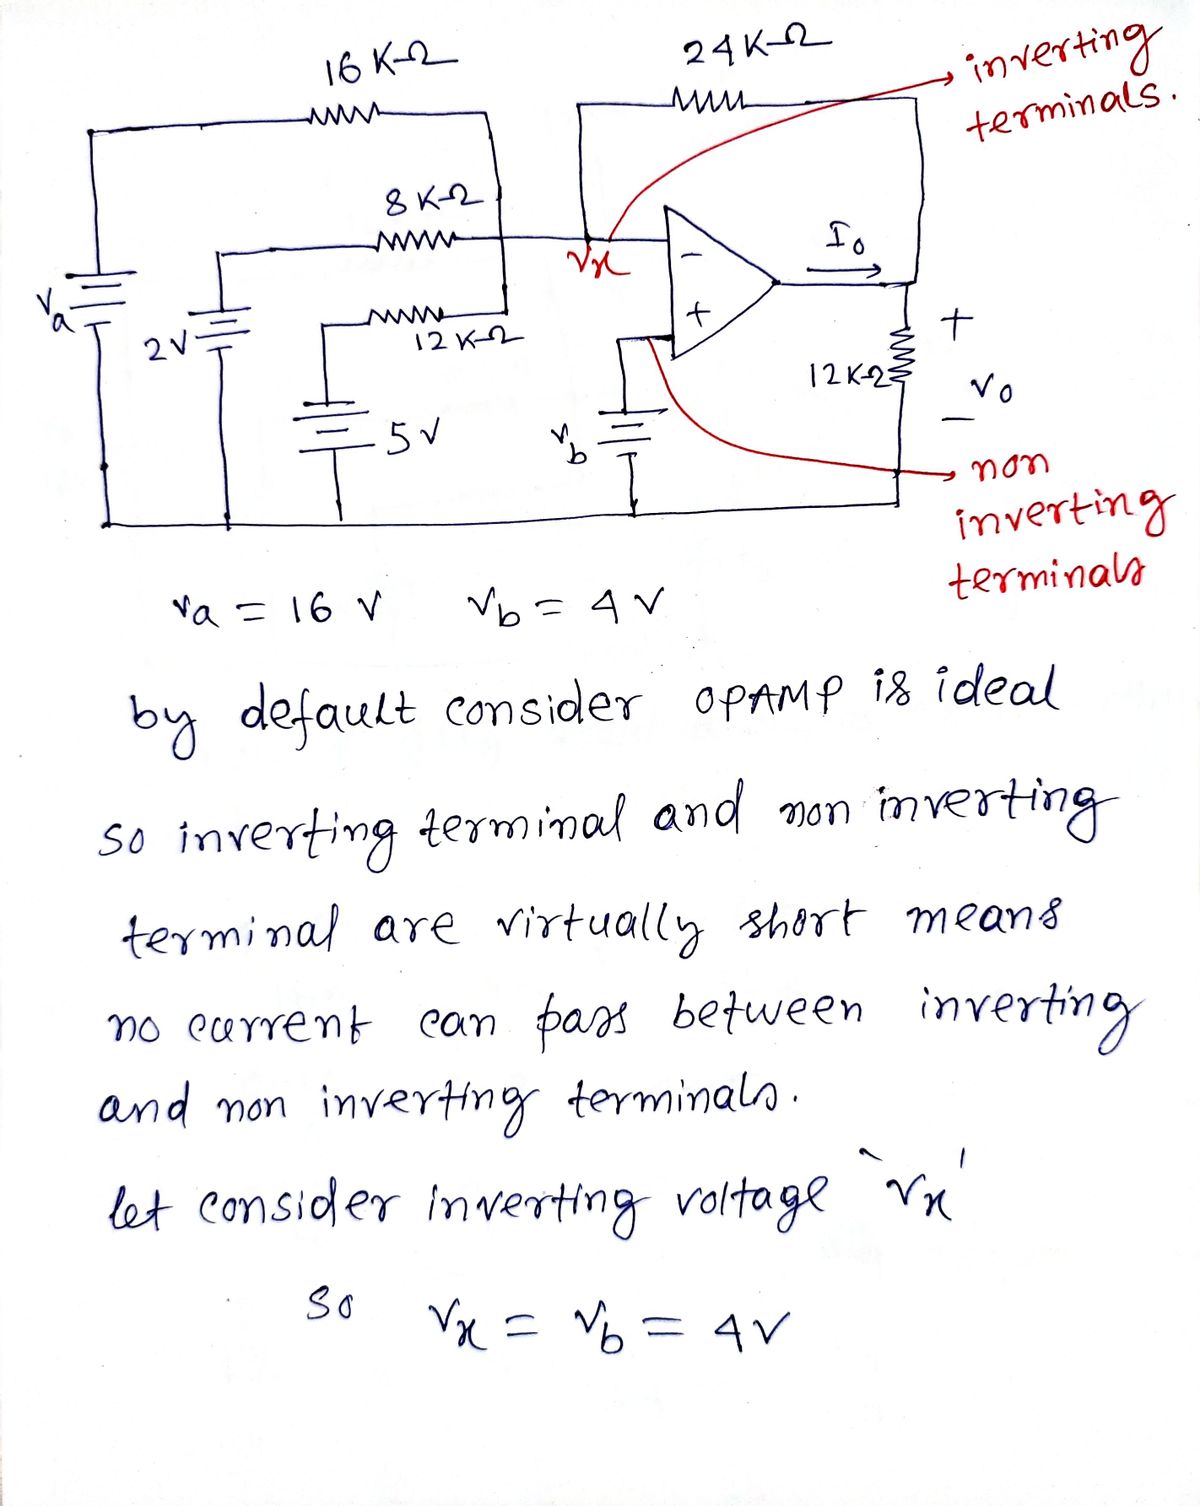 16 K-Ω
24 K-Ω
inverting
terminals.
8 K-Ω
Vx
I₀
Va
2V
12 K-Ω
-
+
12K-Ω
+
V₀
-
5V
Vb
non
inverting
terminals
Va = 16 V Vb = 4 V
by default consider OPAMP is ideal
so inverting terminal and non inverting
terminal are virtually short means
no current can pass between inverting
and non inverting terminals.
let consider inverting voltage 'Vx'
So Vx = Vb = 4V